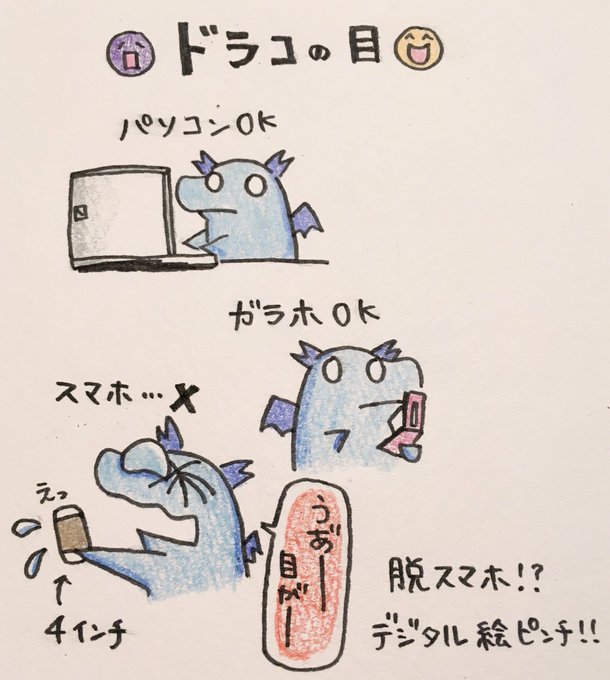 ドラコの目
パソコンOK
ガラホOK
スマホ…✗
えっ
↑
4インチ
うお゛ー
目がー
脱スマホ!?
デジタル絵ピンチ!!